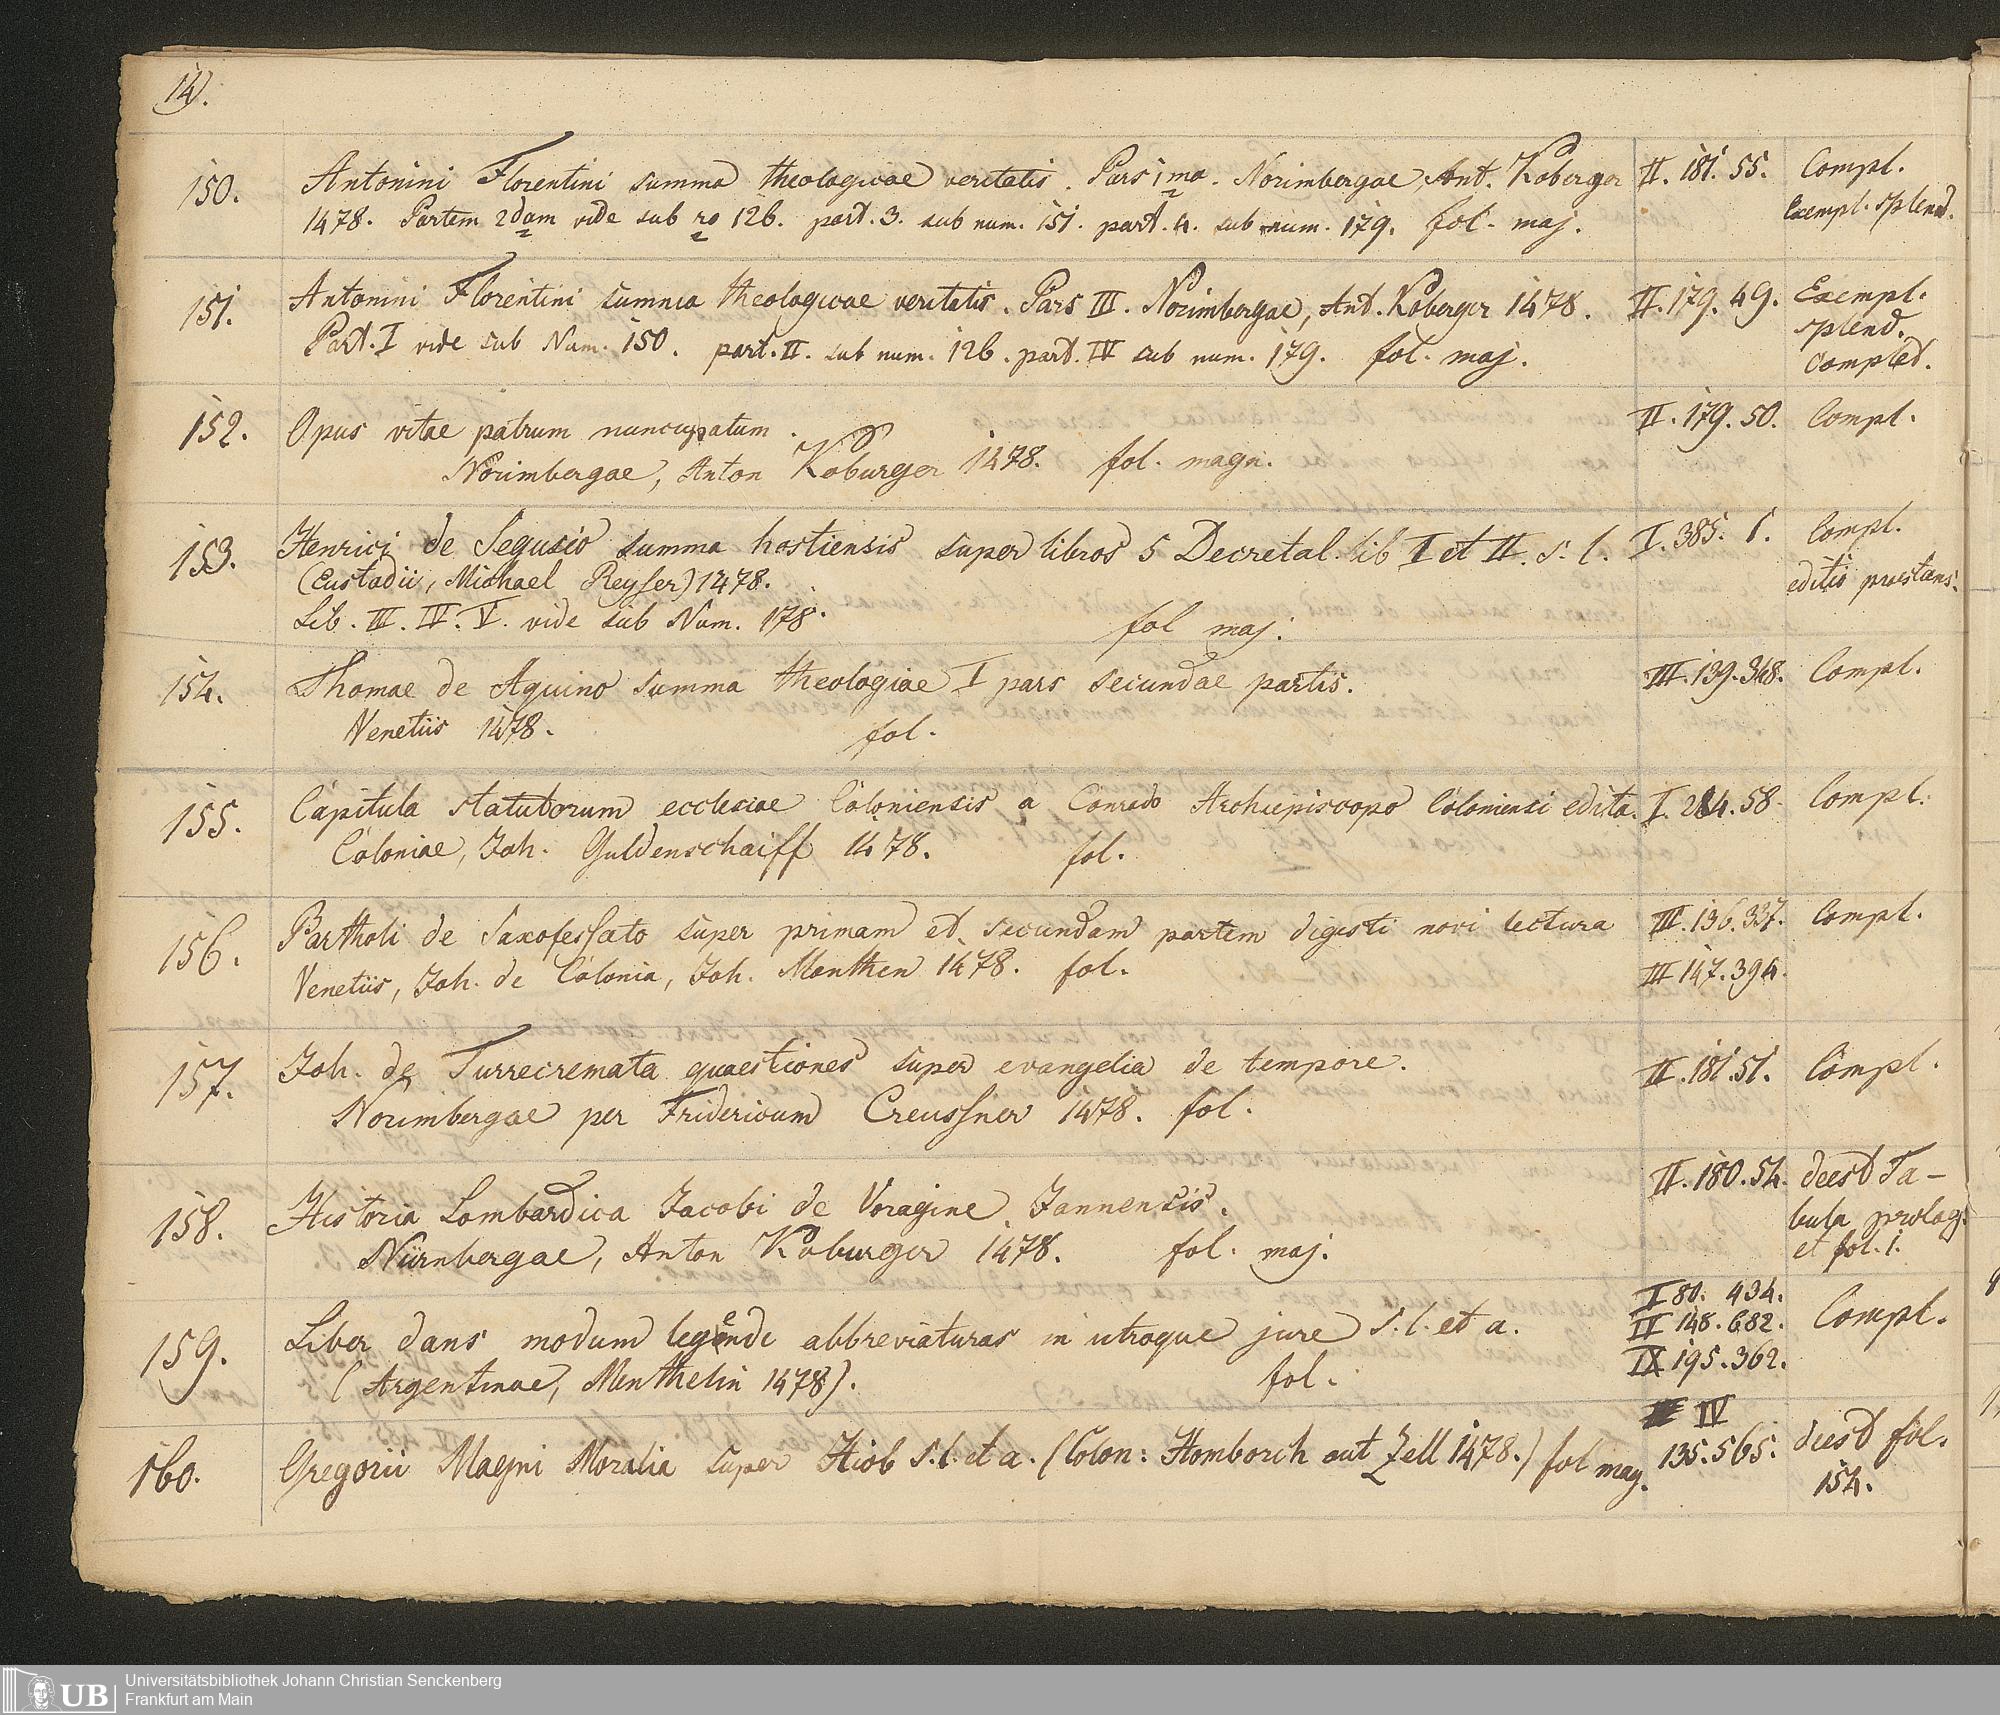 14.
150. Antonini Florentini summa theologicae veritatis. Pars 1ma. Norimbergae, Ant. Koberger II. 181. 55. Compl.
1478. Partem 2dam vide sub ro 126. part. 3. sub num. 151. part. 4. sub num. 179. fol. maj. Exempl. splend.
151. Antonini Florentini summa theologicae veritatis. Pars III. Norimbergae, Ant. Koberger 1478. II. 179. 49. Exempl.
splend.
Part. I vide sub Num. 150. part. II. sub num. 126. part. IV sub num. 179. fol. maj. complet.
152. Opus vitae patrum nuncupatum. II. 179. 50. Compl.
Norimbergae, Anton Koburger 1478. fol. magn.
153. Henrici de Segusio summa hostiensis super libros 5 Decretal. lib I et II. s. l. I. 385. 1. Compl.
(Eustadii, Michael Reyser) 1478. editio praestans.
Lib. III. IV. V. vide sub Num. 178. fol maj.
154. Thomae de Aquino summa theologiae I pars secundae partis. III. 139. 348. Compl.
Venetiis 1478. fol.
155. Capitula statutorum ecclesiae Coloniensis a Conrado Archiepiscopo Coloniensi edita. I. 214. 58. Compl.
Coloniae, Joh. Guldenschaiff 1478. fol.
156. Bartholi de Saxofersato super primam et secundam partem digesti novi lectura III. 136. 337. Compl.
Venetiis, Joh. de Colonia, Joh. Manthen 1478. fol. III 147. 394.
157. Joh. de Turrecremata quaestiones super evangelia de tempore. II. 181. 51. Compl.
Norimbergae per Fridericum Creussner 1478. fol.
158. Historia Lombardica Jacobi de Voragine Jannensis. II. 180. 54. deest Ta-
bula prolog.
Nürnbergae, Anton Koburger 1478. fol. maj. et fol. 1.
159. Liber dans modum legende abbreviaturas in utroque jure s. l. et a. I 80. 434. Compl.
II 148. 682.
(Argentinae, Menthelin 1478). fol. IX 195. 362.
IV
160. Gregorii Magni Moralia super Hiob s. l. et a. (Colon: Homborch aut Zell 1478.) fol mag. 135. 565. deest fol.
154.
UB Universitätsbibliothek Johann Christian Senckenberg
Frankfurt am Main